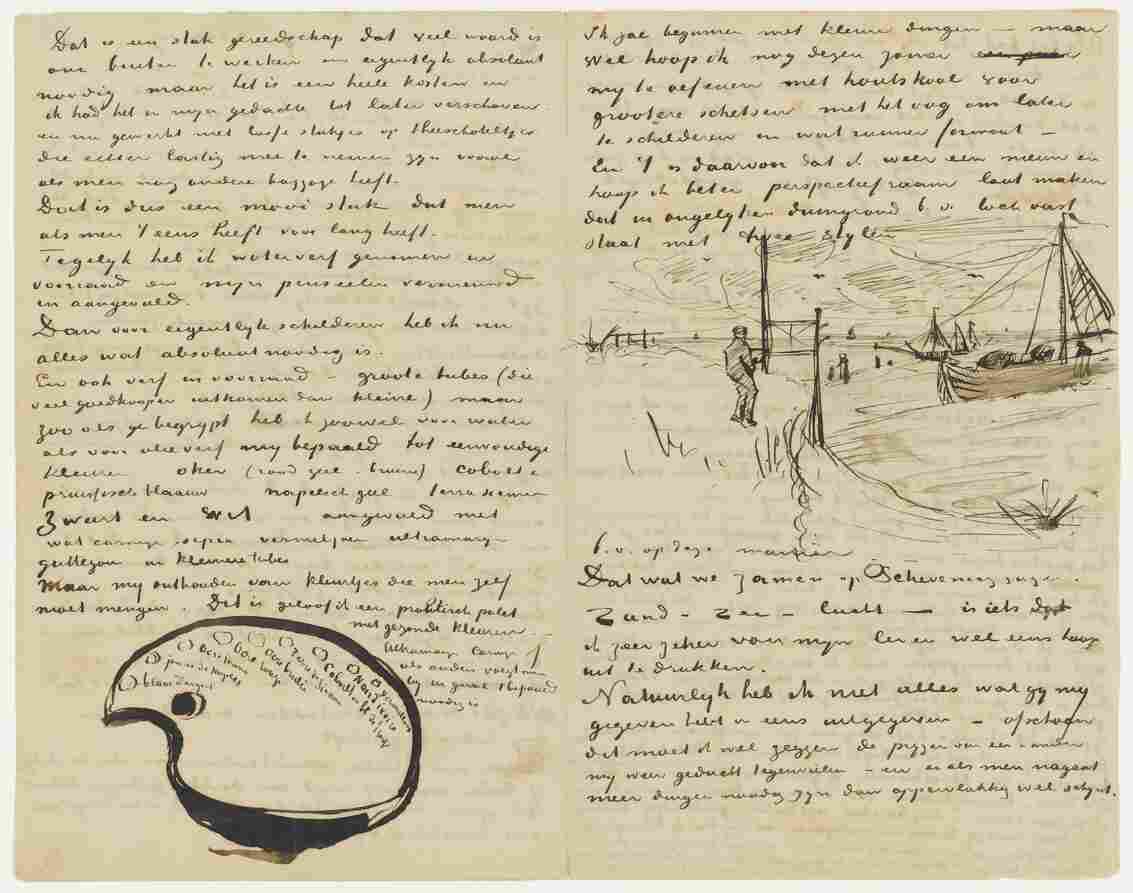 Dat is een stuk gereedschap dat veel waard is
om buiten te werken en eigentlyk absoluut
noodig maar het is een heele kosten en
ik had het in myn gedachte tot later verschoven
en nu gewerkt met losse stukjes op theeschoteltjes
die echter lastig mee te nemen zyn vooral
als men nog andere baggage heeft.
Dat is dus een mooi stuk dat men
als men 't eens heeft voor lang heeft.
Tegelyk heb ik waterverf genomen in
voorraad en myn penseelen vernieuwd
en aangevuld.
Dan voor eigentlyk schilderen heb ik nu
alles wat absoluut noodig is.
En ook verf in voorraad – groote tubes (die
veel goedkooper uitkomen dan kleine) maar
zooals ge begrypt heb ik zoowel voor water
als voor olieverf my bepaald tot eenvoudige
kleuren oker (rood geel bruin) cobalt &
pruissisch blaauw napelsch geel terra sienna
zwart en wit aangevuld met
wat carmyn sepia vermiljoen ultramaryn
guttegom in kleinere tubes
Maar my onthouden van kleurtjes die men zelf
moet mengen. Dit is geloof ik een praktisch palet
met gezonde kleuren. –
Ultramaryn Carmyn of
als anders voegt men
by in geval 't bepaald
noodig is
blanc d'argent
jaune de Naples
Ocre jaune
Ocre rouge
Ocre brulee
Terre de Sienne
Cobalt
Noir ivoire
vermillon
Ik zal beginnen met kleine dingen – maar
wel hoop ik nog dezen zomer
my te oefenen met houtskool voor
grootere schetsen met het oog om later
te schilderen in wat ruimer formaat –
En 't is daarvoor dat ik weer een nieuw en
hoop ik beter perspectiefraam laat maken
dat in ongelyken duingrond b.v. toch vast
staat met twee stylen
b.v. op deze manier
Dat wat we zamen op Schevening zagen.
Zand – zee – lucht – is iets dat
ik zeer zeker van myn leven wel eens hoop
uit te drukken.
Natuurlyk heb ik niet alles wat gy my
gegeven hebt in eens uitgegeven – ofschoon
dit moet ik wel zeggen de pryzen van een & ander
my weer geducht tegenvielen – en er als men nagaat
meer dingen noodig zyn dan oppervlakkig wel schynt.